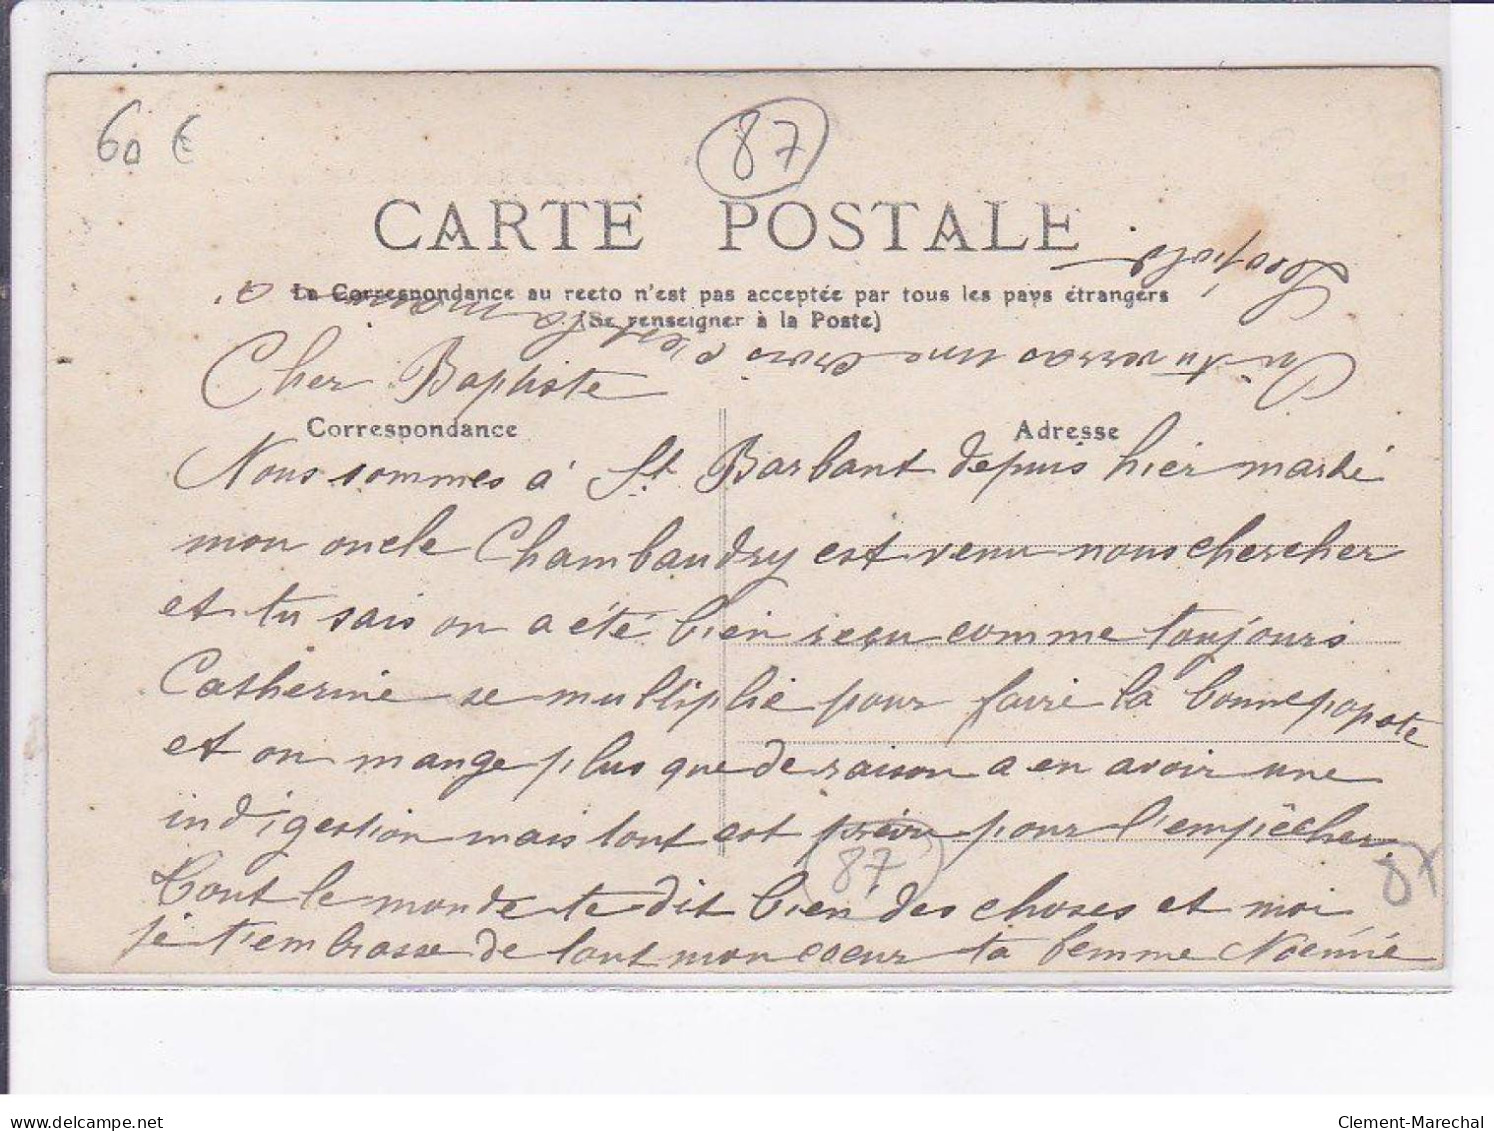 60 €
87
CARTE POSTALE
La Correspondance au recto n'est pas acceptée par tous les pays étrangers
(Se renseigner à la Poste)
Cher Baptiste
Correspondance
Adresse
Nous sommes à St Barbant depuis hier mardi
mon oncle Chambaudry est venu nous chercher
et tu sais on a été bien reçu comme toujours
Catherine se multiplie pour faire la bonne popote
et on mange plus que de raison a en avoir une
indigestion mais tout est prévu pour l'empêcher.
87
87
Tout le monde te dit bien des choses et moi
je t'embrasse de tout mon coeur ta femme Noémie
tu verras une croix c'est la maison
delcampe.net
Clement-Marechal